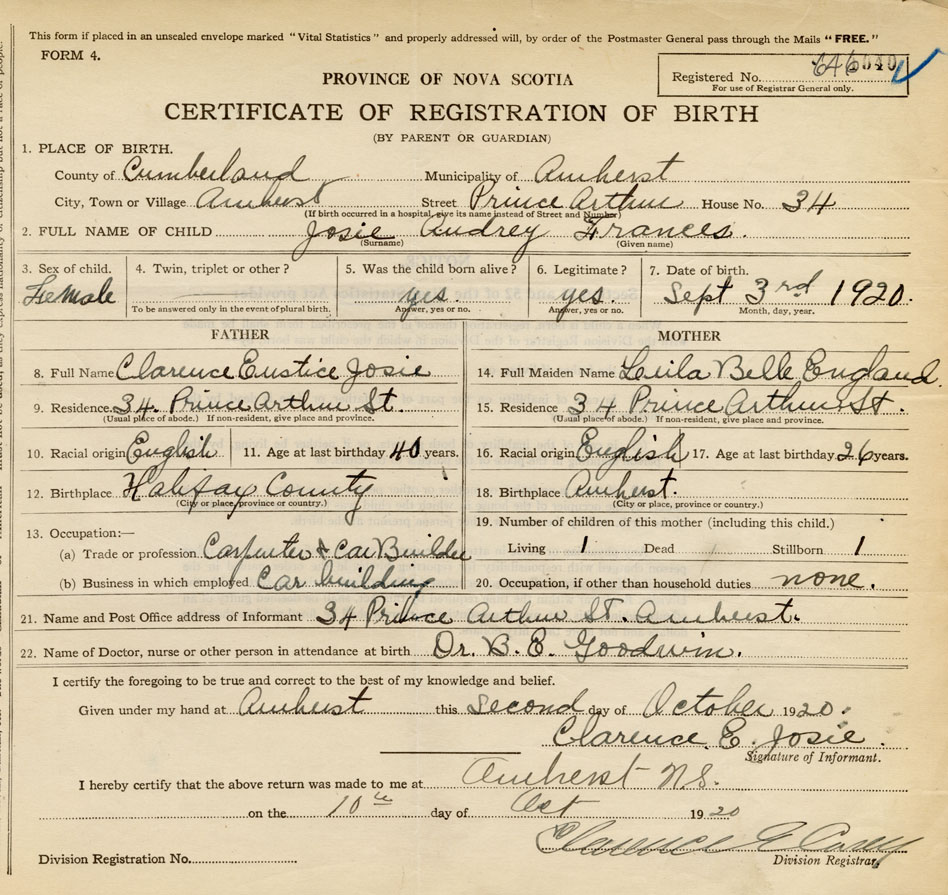 This form if placed in an unsealed envelope marked "Vital Statistics" and properly addressed will, by order of the Postmaster General pass through the Mails "FREE."
FORM 4.
PROVINCE OF NOVA SCOTIA
Registered No.
For use of Registrar General only.
CERTIFICATE OF REGISTRATION OF BIRTH
(BY PARENT OR GUARDIAN)
1. PLACE OF BIRTH.
County of Cumberland Municipality of Amherst
City, Town or Village Amherst Street Prince Arthur House No. 34
(If birth occurred in a hospital, give its name instead of Street and Number)
2. FULL NAME OF CHILD Josie Audrey Frances.
(Surname) (Given name)
3. Sex of child. 4. Twin, triplet or other? 5. Was the child born alive? 6. Legitimate? 7. Date of birth.
Female yes. yes. Sept 3rd 1920.
To be answered only in the event of plural birth. Answer, yes or no. Answer, yes or no. Month, day, year.
FATHER MOTHER
8. Full Name Clarence Eustice Josie 14. Full Maiden Name Leila Belle England.
9. Residence. 34. Prince Arthur St. 15. Residence 34 Prince Arthur St.
(Usual place of abode.) If non-resident, give place and province. (Usual place of abode.) If non-resident, give place and province.
10. Racial origin English 11. Age at last birthday 40 years. 16. Racial origin English 17. Age at last birthday 26 years.
12. Birthplace Halifax County 18. Birthplace Amherst.
(City or place, province or country.) (City or place, province or country.)
13. Occupation:— 19. Number of children of this mother (including this child.)
(a) Trade or profession Carpenter & Car Builder Living 1 Dead Stillborn 1
(b) Business in which employed Car building 20. Occupation, if other than household duties none.
21. Name and Post Office address of Informant 34 Prince Arthur St. Amherst.
22. Name of Doctor, nurse or other person in attendance at birth Dr. B. E. Goodwin.
I certify the foregoing to be true and correct to the best of my knowledge and belief.
Given under my hand at Amherst this Second day of October 1920.
Clarence E. Josie.
Signature of Informant.
I hereby certify that the above return was made to me at Amherst N.S.
on the 10th day of Oct 1920
Clarence
Division Registration No. Division Registrar,